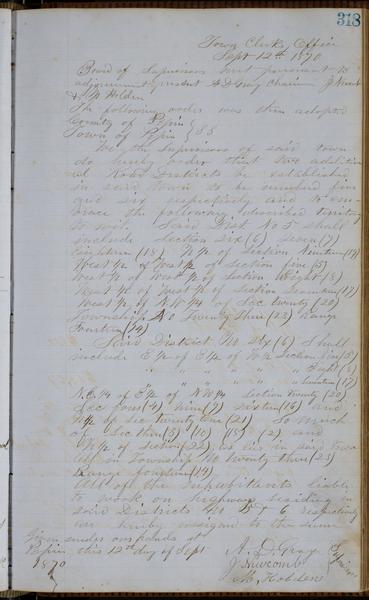 318
Town Clerks Office
Sept 12th 1870
Board of Supervisors met pursuant to
adjournment present A D Gray Chairman J Newcomb
& M Holden
The following order was then adopted
County of Pepin }
Town of Pepin } SS
We the Supervisors of said town
do hereby order that two addition
al Road Districts be established
in said town to be numbered five
and six respectively and to em-
brace the following described territory
to wit. Said Dist No 5 shall
include Section Six (6) Seven (7)
Eighteen (18) N ½ of Section Nineteen (19)
West ½ of West ½ of Section five (5)
West ½ of West ½ of Section Eight (8)
West ½ of West ½ of Section Seventeen (17)
West ½ of N W ¼ of Sec twenty (20)
Township No Twenty Three (23) Range
Fourteen (14)
Said District No Six (6) Shall
include E ½ of E ½ of W ½ Section five (5)
" " " " " " " Eight (8)
" " " " " " " Seventeen (17)
N.E. ¼ of E ½ of N W ¼ Section Twenty (20)
Sec four (4) nine (9) sixteen (16) and
N ½ of Sec twenty one (21) So much
of Sec three (3) (10) (15) and
N W ¼ of Section (22) as lies in said town
All in Township No twenty three (23)
Range fourteen (14)
All of the inhabitants liable
to work on highways residing in
said Districts No 5 & 6 respectively
are hereby assigned to the same
Given under our hands at
Pepin this 12th day of Sept
1870
A. D. Gray
J Newcomb
M, Holden
Supervisors